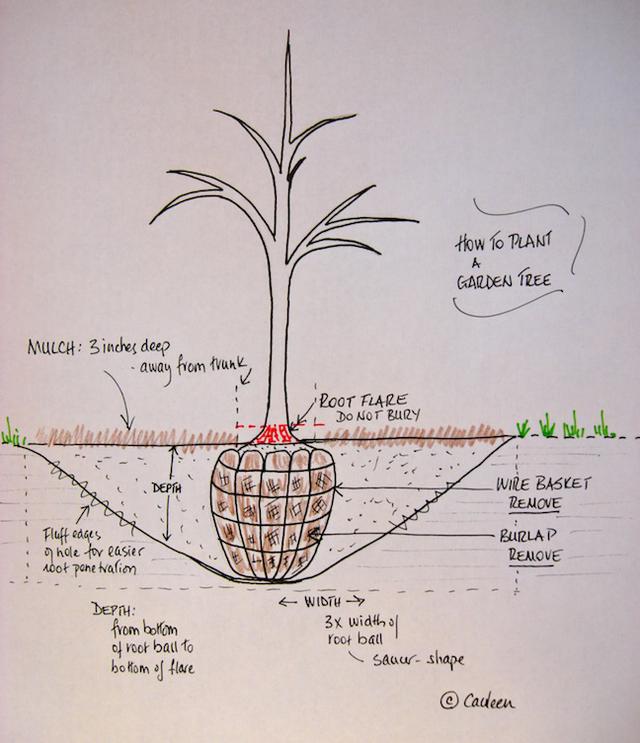 HOW TO PLANT
A
GARDEN TREE
MULCH: 3 inches deep
- away from trunk
ROOT FLARE
DO NOT BURY
DEPTH
WIRE BASKET
REMOVE
BURLAP
REMOVE
Fluff edges
of hole for easier
root penetration
WIDTH
3x width of
root ball
saucer-shape
DEPTH:
from bottom
of root ball to
bottom of flare
© Carleen